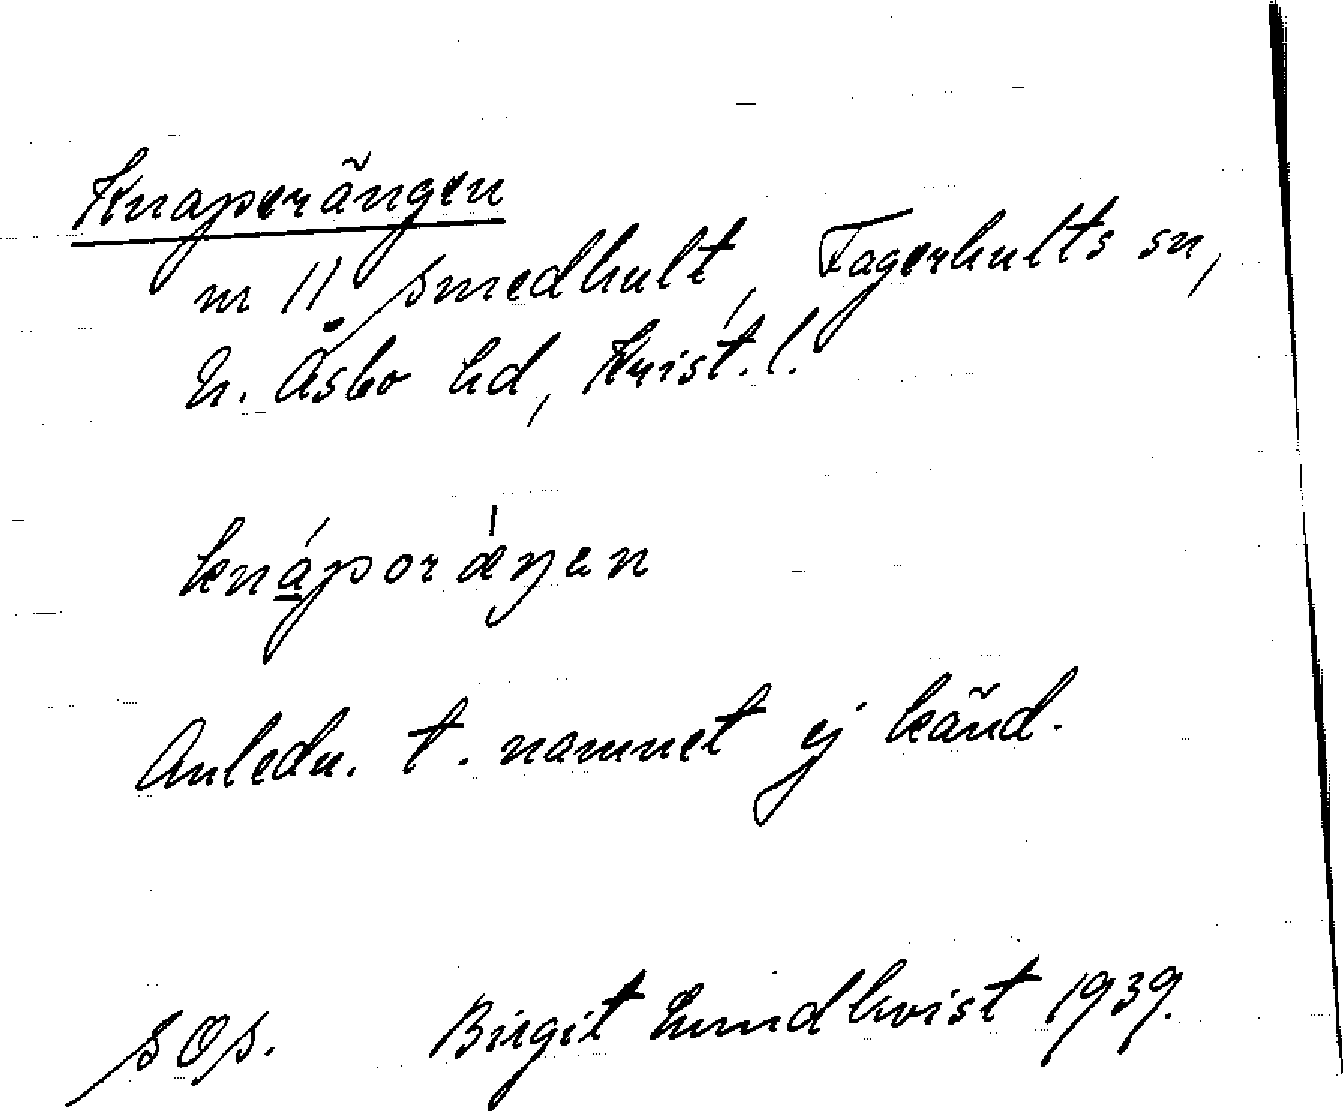 Knaperängen
nr 11 Smedhult, Fagerhults sn,
N. Åsbo hd, Krist. l.
knáporæ̀ŋen
Anledn. t. namnet ej känd.
Birgit Lundkvist 1939.